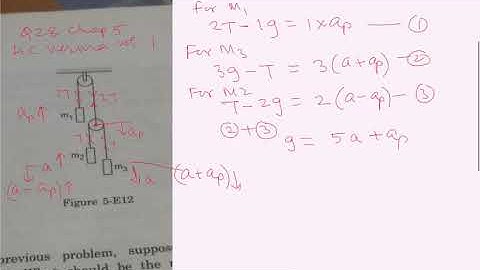 Q28 Chap 5
HC verma vol 1
2T
2T
T
T
ap↑
m₁
↓ap
a↑
m₂
m₃
↓a
(a-ap)↑
(a+ap)↓
Figure 5-E12
previous problem, suppos
should be the
for M₁
2T-1g = 1×ap — ①
For M3
3g-T = 3(a+ap)-②
For M2
T-2g = 2(a-ap)-③
②+③
g = 5a+ap